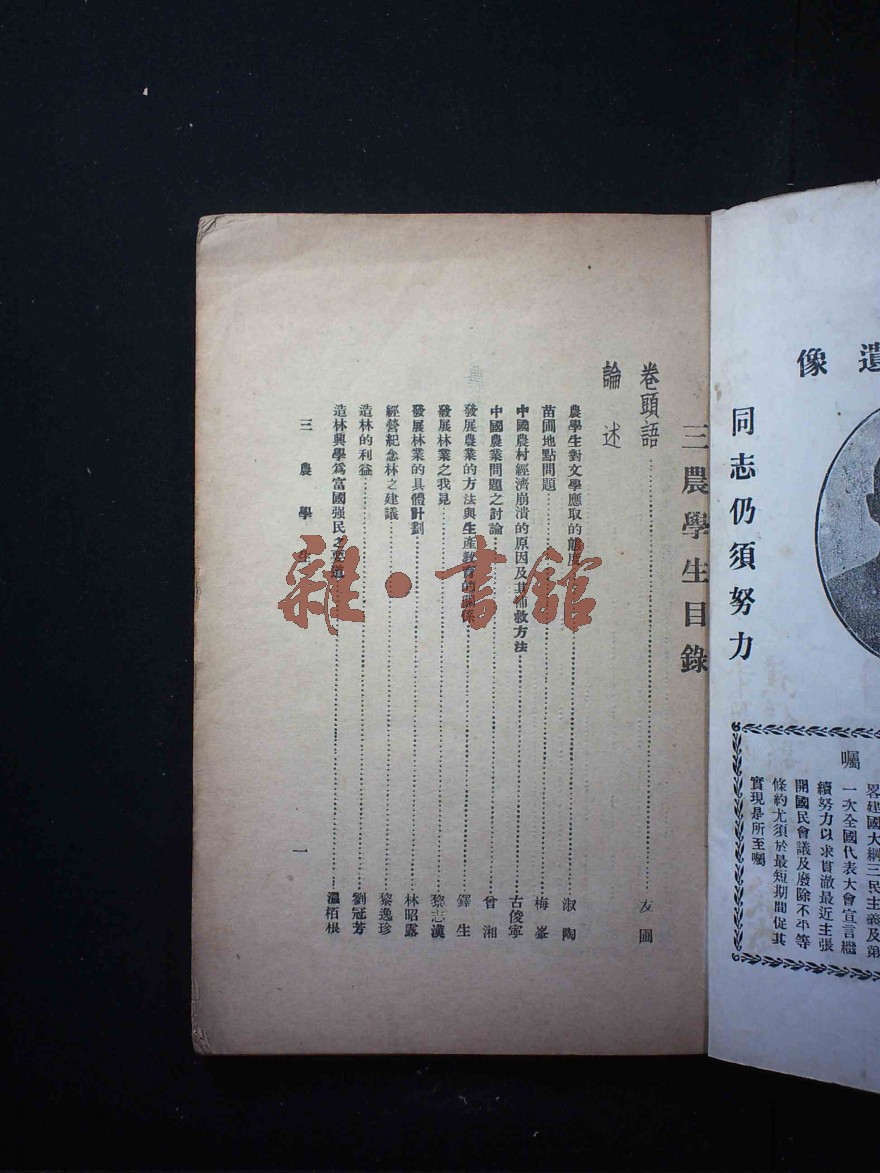 遺像
同志仍須努力
囑
畧建國大綱三民主義及第
一次全國代表大會宣言繼
續努力以求貫澈最近主張
開國民會議及廢除不平等
條約尤須於最短期間促其
實現是所至囑
三農學生目錄
卷頭語……友圃
論述
農學生對文學應取的態度……淑陶
苗圃地點問題……梅峯
中國農村經濟崩潰的原因及其補救方法……古俊寧
中國農業問題之討論……曾湘
發展農業的方法與生產教育的關係……鐸生
發展林業之我見……黎志漢
發展林業的具體計劃……林昭露
經營紀念林之建議……黎逸珍
造林的利益……劉冠芳
造林興學爲富國强民之要道……溫栢根
三農學生
一
雜·書館